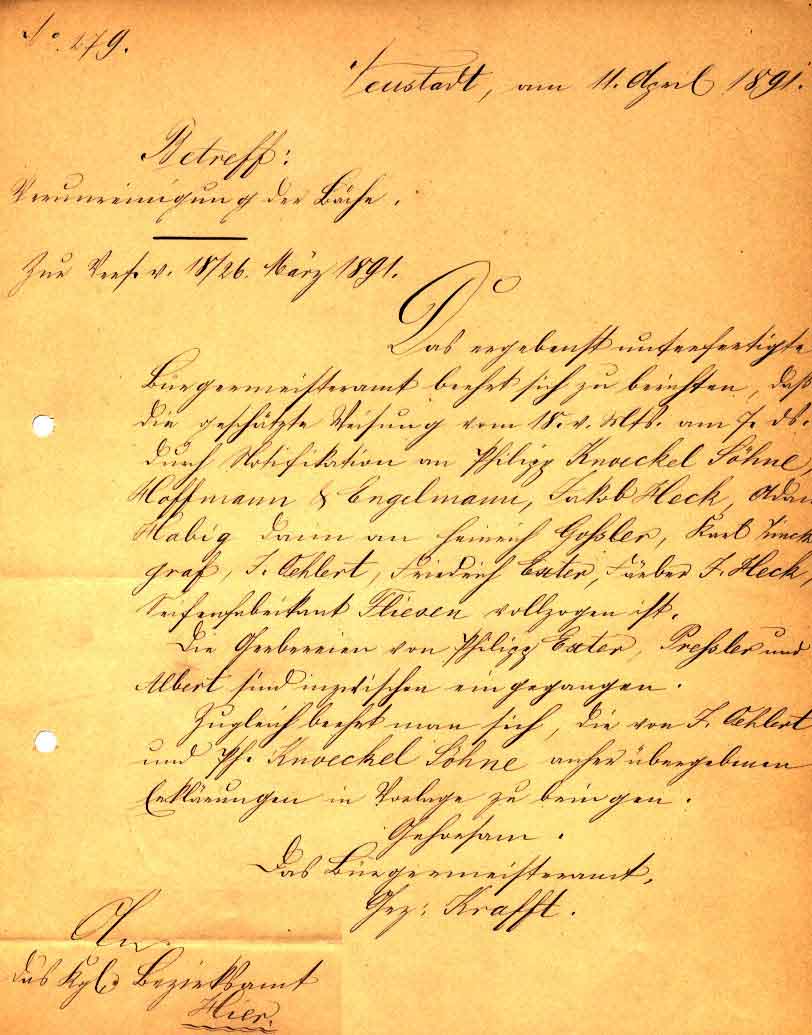 No. 279.
Neustadt, am 11. April 1891.
Betreff:
Verunreinigung der Bäche.
Zur Verf. v. 18/26. März 1891.
Das ergebenst unterfertigte
Bürgermeisteramt beehrt sich zu berichten, daß
die geschätzte Weisung vom 18. v. Mts. am 7. ds.
durch Notifikation an Philipp Knoeckel Söhne,
Hoffmann & Engelmann, Jakob Heck, Adam
Habig dann an Heinrich Goßler, Karl Zinck
graf, J. Oehlert, Friedrich Exter, Färber F. Heck,
Seifenfabrikant Fliesen vollzogen ist.
Die Gerbereien von Philipp Exter, Preßler und
Albert sind inzwischen eingegangen.
Zugleich beehrt man sich, die von J. Oehlert
und Ph. Knoeckel Söhne anher übergebenen
Erklärungen in Vorlage zu bringen.
Gehorsam.
Das Bürgermeisteramt,
Gez: Krafft.
An
das Kgl. Bezirksamt
Hier.